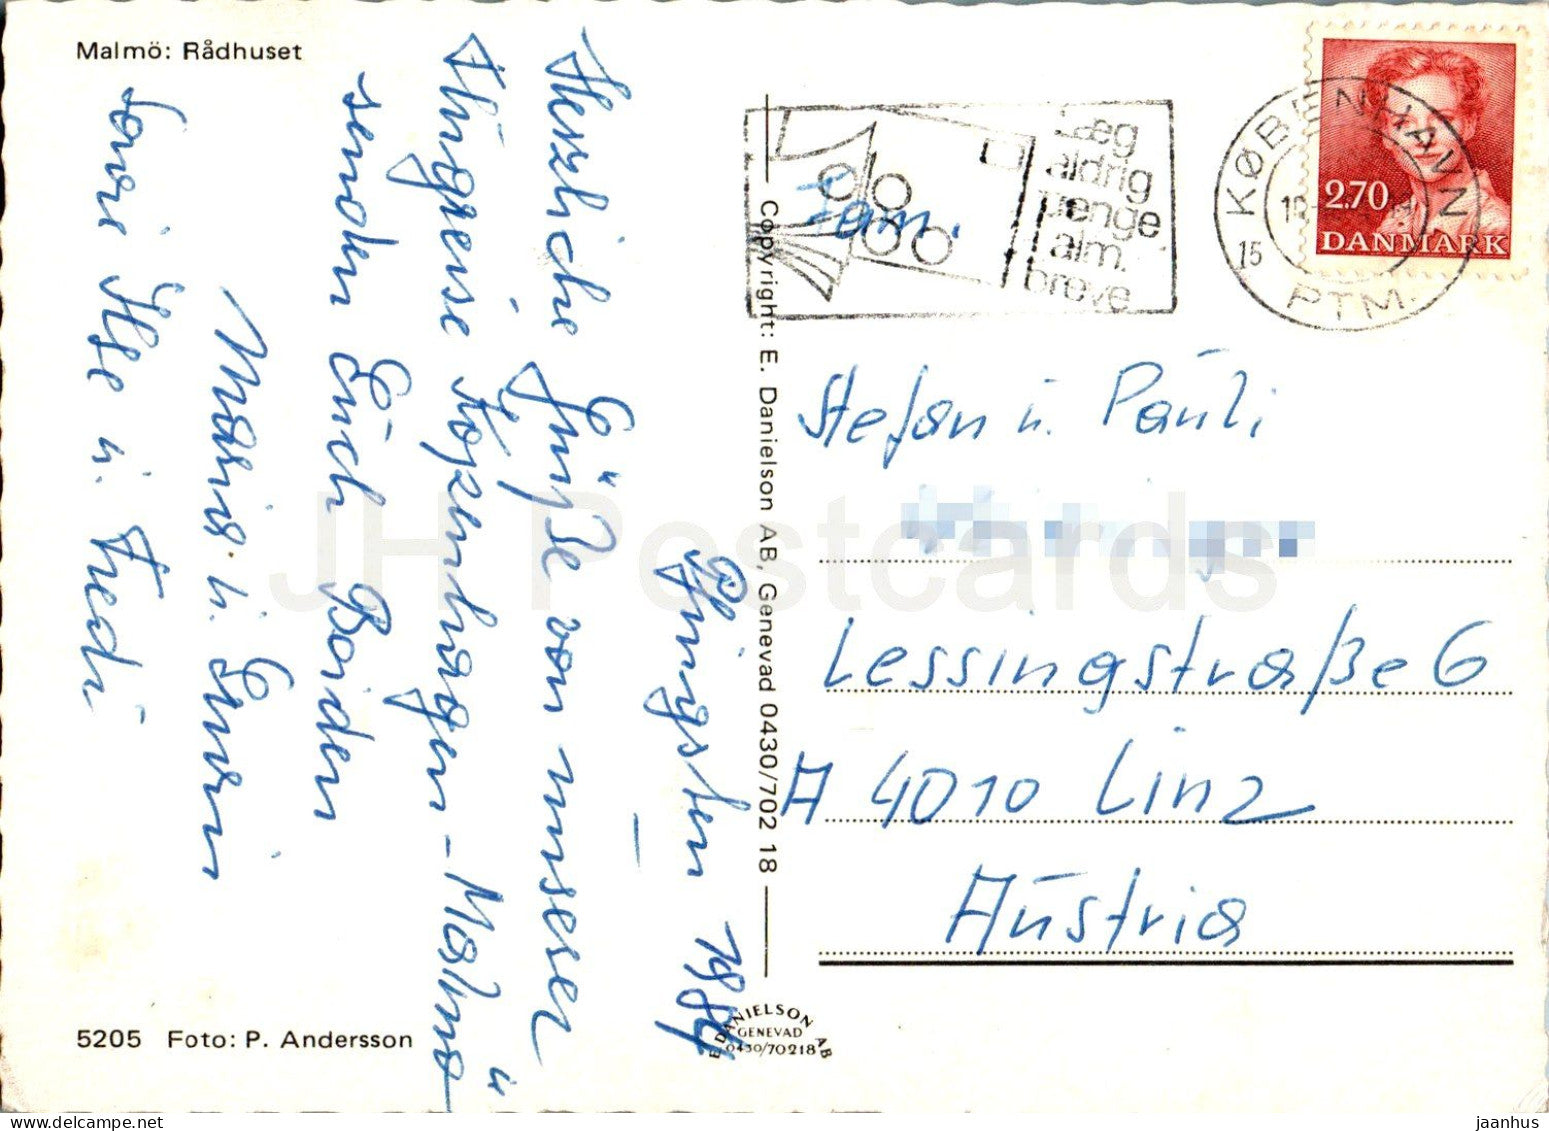 Malmö: Rådhuset
Pfingsten 1984
Herzliche Grüße von unserer
Flugreise Kopenhagen - Malmö
senden Euch Beiden
Maria u. Erwin
sowie Ilse u. Fredi
5205 Foto: P. Andersson
Copyright: E. Danielson AB, Genevad 0430/702 18
E DANIELSON AB
GENEVAD
0430/70218
Læg
aldrig
penge
i alm.
breve
KØBENHAVN
15
PTM.
2.70
DANMARK
Fam.
Stefan u. Pauli
Lessingstraße 6
A 4010 Linz
Austria
JH Postcards
jaanhus